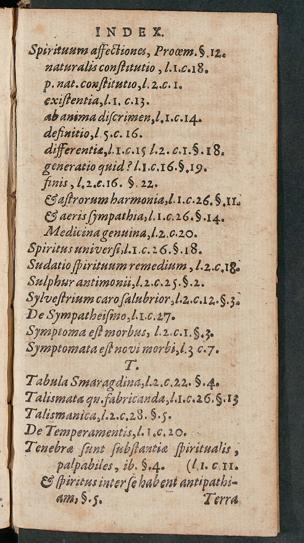 INDEX.
Spirituum affectiones, Proœm. §. 12.
naturalis constitutio, l. 1. c. 18.
p. nat. constitutio, l. 2. c. 1.
existentia, l. 1. c. 13.
ab anima discrimen, l. 1. c. 14.
definitio, l. 5. c. 16.
differentiæ, l. 1. c. 15 l. 2. c. 1. §. 18.
generatio quid? l. 1. c. 16. §. 19.
finis, l. 2. c. 16. §. 22.
& astrorum harmonia, l. 1. c. 26. §. 11.
& aeris sympathia, l. 1. c. 26. §. 14.
Medicina genuina, l. 2. c. 20.
Spiritus universi, l. 1. c. 26. §. 18.
Sudatio spirituum remedium, l. 2. c. 18.
Sulphur antimonii, l. 2. c. 25. §. 2.
Sylvestrium caro salubrior, l. 2. c. 12. §. 3.
De Sympatheismo, l. 1. c. 27.
Symptoma est morbus, l. 2. c. 1. §. 3.
Symptomata est novi morbi, l. 3 c. 7.
T.
Tabula Smaragdina, l. 2. c. 22. §. 4.
Talismata qu. fabricanda, l. 1. c. 26. §. 13
Talismanica, l. 2. c. 28. §. 5.
De Temperamentis, l. 1. c. 20.
Tenebræ sunt substantiæ spirituales,
palpabiles, ib. §. 4. (l. 1. c. 11.
& spiritus inter se habent antipathi-
am, §. 5. Terra